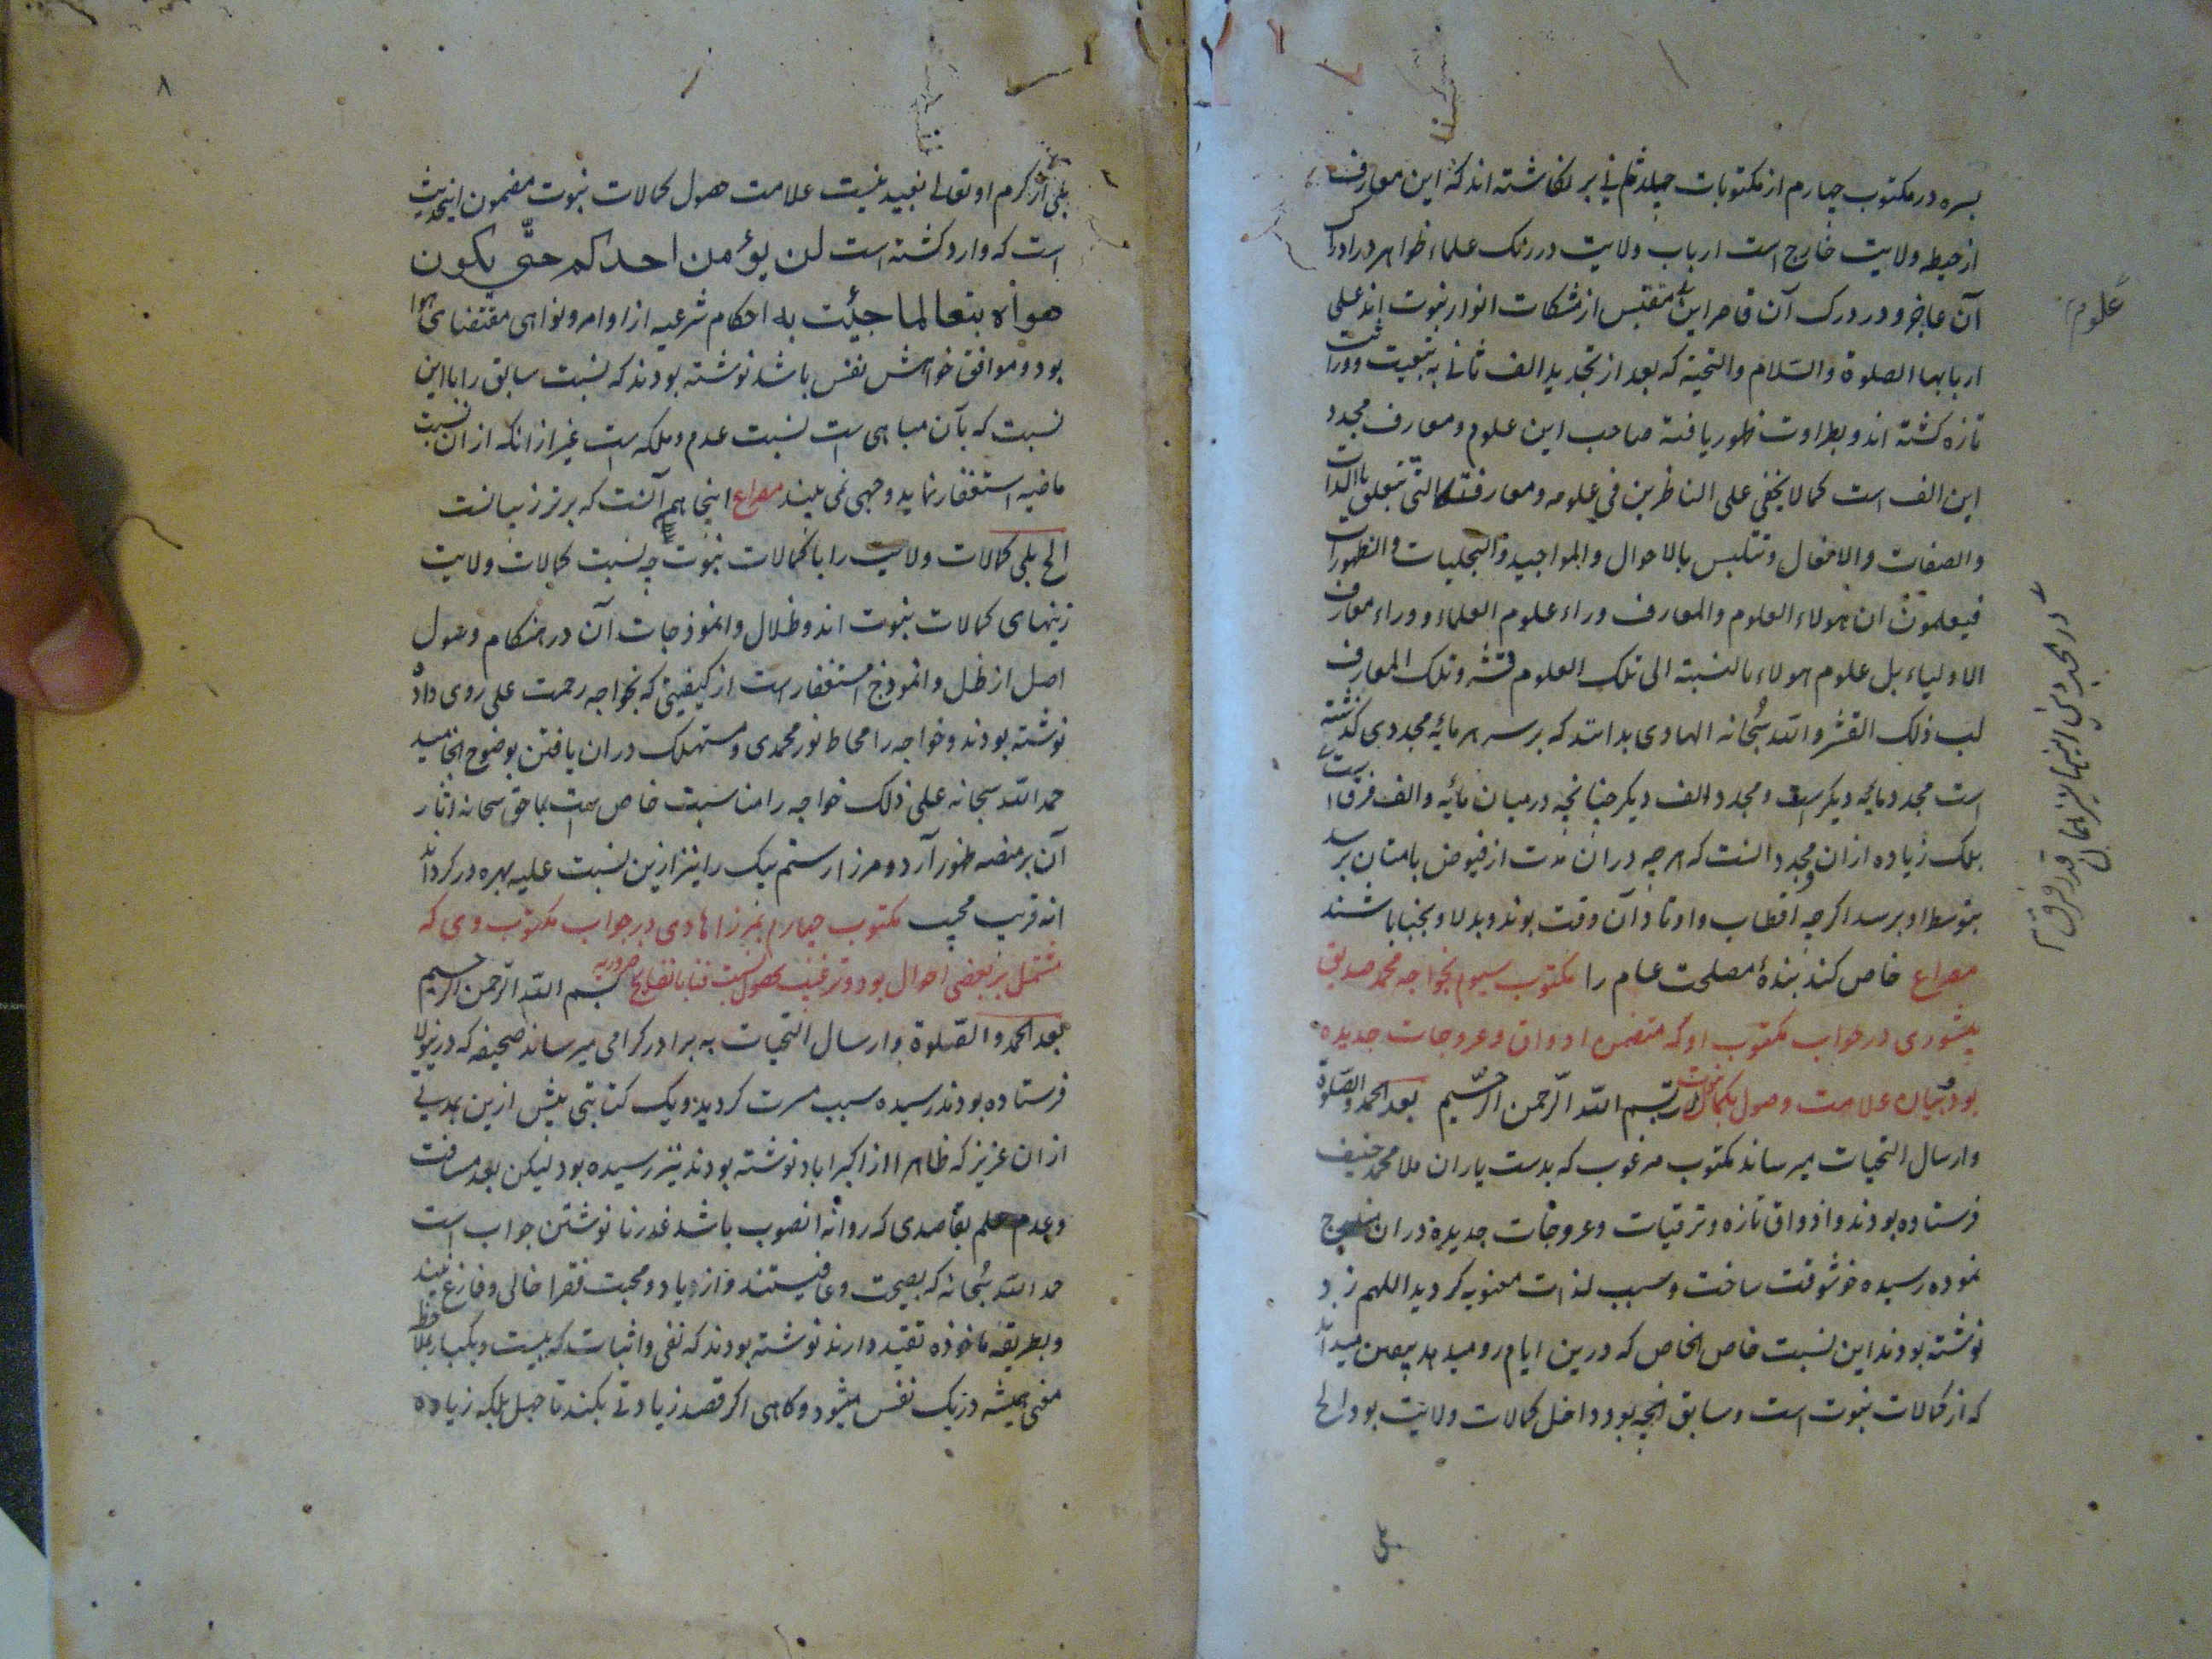 بسره در مکتوب چهارم از مکتوبات جلد ثانی بر نکاشته اند که این معارف
از حیطه ولایت خارج است ارباب ولایت در رنک علماء ظواهر در ادراک
آن عاجز و در درک آن قاصر این علوم مقتبس از مشکات انوار نبوت اند علی
اربابها الصلوة والسلام والتحیة که بعد از تجدید الف ثانی به تبعیت و وراثت
تازه کشته اند و بطراوت ظهور یافته صاحب این علوم و معارف مجدد
این الف است کما لا یخفی علی الناظرین فی علومه و معارفه التی تتعلق بالذات
والصفات والافعال وتتلبس بالاحوال والمواجید والتجلیات والظهورات
فیعلمون ان هولاء العلوم والمعارف وراء علوم العلماء و وراء معارف
الاولیاء بل علوم هولاء بالنسبة الی تلک العلوم قشر و تلک المعارف
لب ذلک القشر والله سبحانه الهادی بدانند که بر سر هر مائه مجددی کذشته
است مجدد مائه دیکر است و مجدد الف دیکر چنانچه در میان مائه و الف فرق است
بلک زیاده از ان و مجدد آنست که هر چه در ان مدت از فیوض بامتان برسد
بتوسط او برسد اکرچه اقطاب و اوتاد آن وقت بوند و بدلا و نجبا باشند
مصراع خاص کند بندهٔ مصلحت عام را مکتوب سیوم بخواجه محمد صدیق
پشوری در جواب مکتوب او که متضمن اذواق و عروجات جدیده
بود و بیان علامت وصول بکمالات نبوت بسم الله الرحمن الرحیم بعد الحمد والصلوة
وارسال التحیات میرساند مکتوب مرغوب که بدست یاران ملا محمد حنیف
فرستاده بودند و اذواق تازه و ترقیات و عروجات جدیده در ان
نموده رسیده خوشوقت ساخت و سبب لذات معنویه کردید اللهم زد
نوشته بودند این نسبت خاص الخاص که درین ایام رو میدهد بیقین میداند
که از کمالات نبوت است و سابق انچه بود داخل کمالات ولایت بود الخ
بلی
علوم
۸
بلی از کرم او تعالی بعید نیست علامت حصول کمالات نبوت مضمون اینحدیث
است که وارد کشته است لن یؤمن احدکم حتی یکون
هواه تبعا لما جئت به احکام شرعیه از اوامر و نواهی مقتضای هوا
بود و موافق خواهش نفس باشد نوشته بودند که نسبت سابق را با این
نسبت که بآن مباهی است نسبت عدم و ملکه است غیر از انکه از ان نسبت
ماضیه استغفار نماید وجهی نمی بیند مصراع اینجا هم آنست که برتر ز بیانست
الخ بلی کمالات ولایت را با کمالات نبوت چه نسبت کمالات ولایت
زینهای کمالات نبوت اند و ظلال و انموذجات آن در هنکام وصول
اصل از ظل و انموذج استغفار است از کیفیتی که بخواجه رحمت علی روی داده
نوشته بودند و خواجه را محاط نور محمدی و مستهلک در ان یافتن بوضوح انجامید
حمد الله سبحانه علی ذلک خواجه را مناسبت خاص است بما حق سبحانه آثار
آن بر منصه ظهور آرد و مرزا رستم بیک را نیز ازین نسبت علیه بهره ور کرداند
انه قریب مجیب مکتوب چهارم بمرزا هادی در جواب مکتوب وی که
مشتمل بر بعضی احوال بود و ترغیب بحصول نسبت فنا با نصایح ضروریه بسم الله الرحمن الرحیم
بعد الحمد والصلوة وارسال التحیات به برادر کرامی میرساند صحیفه که درینولا
فرستاده بودند رسیده سبب مسرت کردید و یک کتابتی پیش ازین بمدتی
از ان عزیز که ظاهرا از اکبراباد نوشته بودند نیز رسیده بود لیکن بعد مسافت
و عدم علم بقاصدی که روانه انصوب باشد عذر نا نوشتن جواب است
حمد الله سبحانه که بصحت و عافیتند و از یاد و محبت فقرا خالی و فارغ نیند
و بطریقه ماخوذه تقید دارند نوشته بودند که نفی و اثبات که بیست و یکبار بملاحظه
معنی همیشه در یک نفس میشود و کاهی اکر قصد زیادتی بکند تا چهل بلکه زیاده